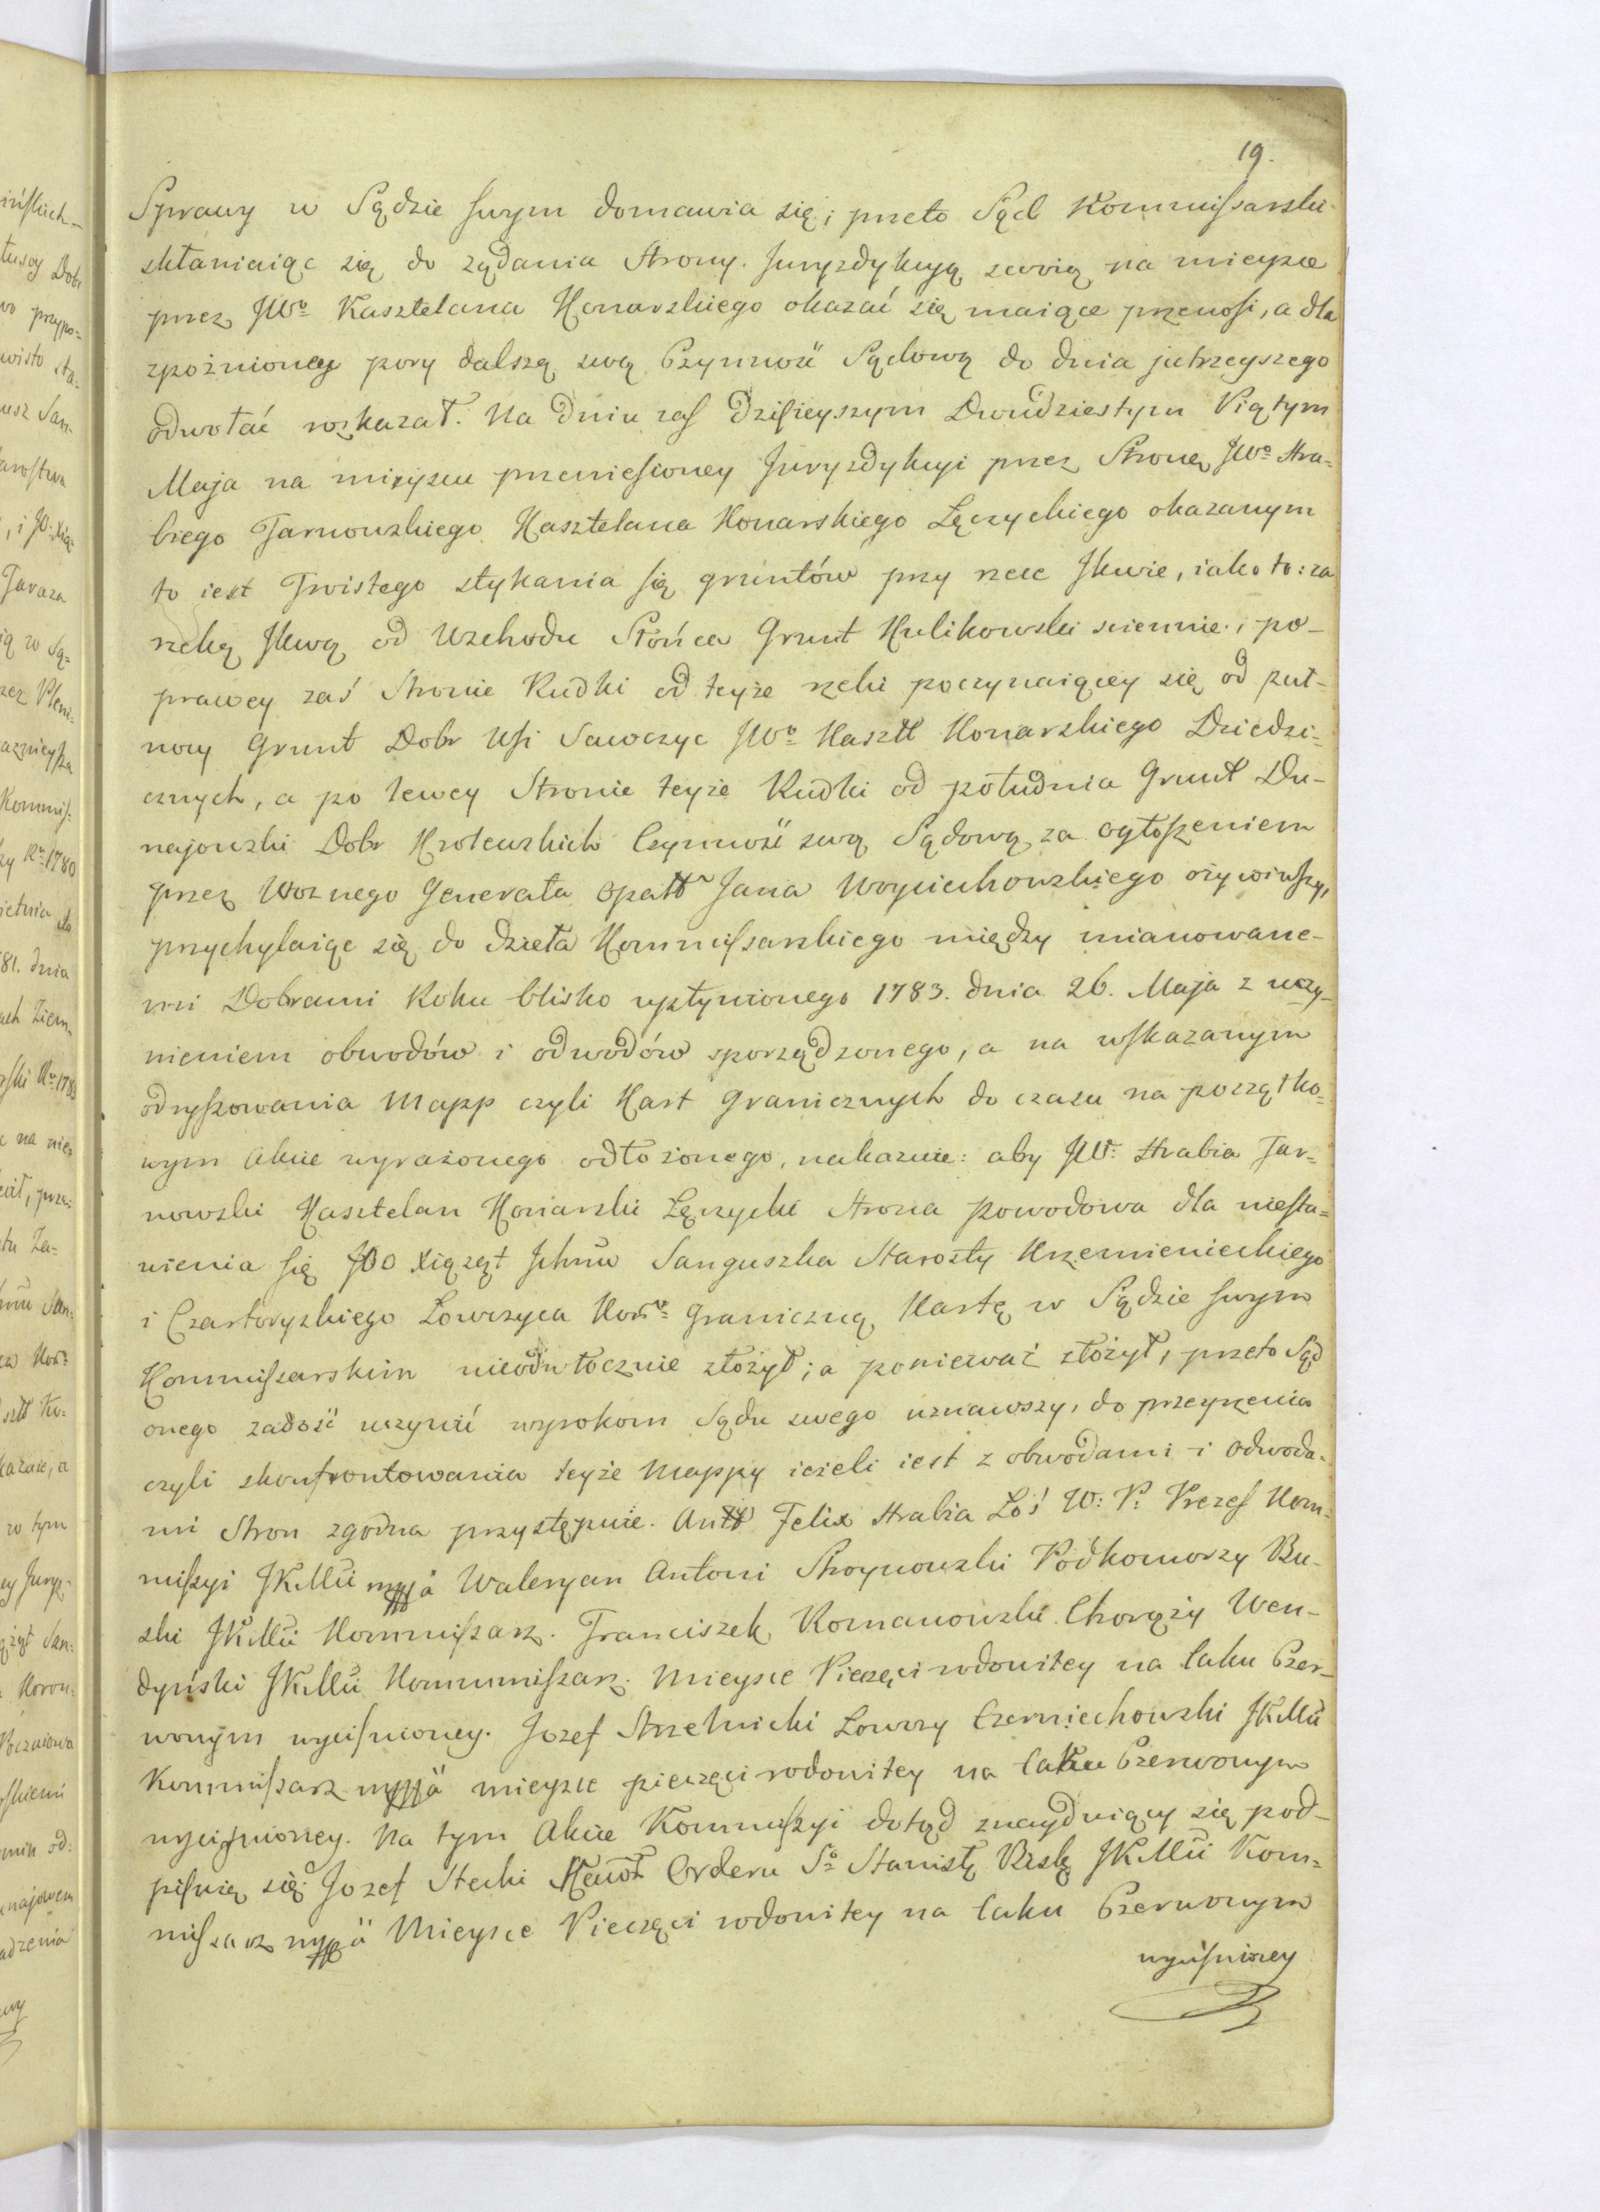 19.
Sprawy w Sądzie swym domawia się; przeto Sąd Kommissarski
skłaniaiąc się do ządania Strony. Juryzdykcyą swoią na mieysce
przez JWo Kasztelana Konarskiego okazać się maiące przenosi, a dla
zpoźnioney pory dalszą swą Czynność Sądową do dnia jutrzeyszego
odwołać rozkazał. Na dniu zaś dzisieyszym Dwudziestym Piątym
Maja na mieyscu przeniesioney Juryzdykcyi przez Stronę JWo Hra-
biego Tarnowskiego Kasztelana Konarskiego Łęczyckiego okazanym
to iest Troistego stykania się gruntów przy rzece Jkwie, iako to: za
rzeką Jkwą od Wschodu Słońca Grunt Kulikowski sciennie; po-
prawey zaś Stronie Rudki od teyże rzeki poczynaiącey się od puł-
nocy Grunt Dobr Wsi Sawczyc JWo Kasztt Konarskiego Dziedzi-
cznych, a po lewey Stronie teyże Rudki od południa Grunt Du-
najowski Dobr Krolewskich Czynność swą Sądową za ogłoszeniem
przez Woznego Generała Opatt Jana Woyciechowskiego ożywiwszy,
przychylaiąc się do dzieła Kommissarskiego między mianowane-
mi Dobrami Roku blisko upłynionego 1783. dnia 26. Maja z uczy-
nieniem obwodów i odwodów sporządzonego, a na wskazanym
odryssowania Mapp czyli Kart Granicznych do czasu na początko-
wym Akcie wyrażonego odłożonego, nakazuie: aby JW: Hrabia Tar-
nowski Kasztelan Konarski Łęczycki Strona powodowa dla niesta-
wienia się JOO Xiąząt Jchmw Sanguszka Starosty Krzemienieckiego
i Czartoryskiego Łowczyca Koro Graniczną Kartę w Sądzie swym
Kommissarskim nieodwłocznie złożył; a ponieważ złożył, przeto Sąd
onego zadość uczynić wyrokom Sądu swego uznawszy, do przeyrzenia
czyli skonfrontowania teyże Mappy ieżeli iest z obwodami i odwoda-
mi Stron zgodna przystępuie. Antt Felix Hrabia Łoś W: P: Prezes Kom-
missyi JKMci mppä Waleryan Antoni Stroynowski Podkomorzy Bu-
ski JKMci Kommissarz. Franciszek Romanowski Chorąży Wen-
dyński JKMci Kommmissarz. Mieysce Pieczęci rodowitey na laku Czer-
wonym wyciśnioney. Jozef Strzelnicki Łowczy Czerniechowski JKMci
Kommissarz mpppä mieysce pieczęci rodowitey na laku Czerwonym
wyciśnioney. Na tym Akcie Kommissyi dotąd znayduiący się pod-
pisuię się: Jozef Stecki Orderu So Stanisł JKMci Kom-
missarz mppä Mieysce Pieczęci rodowitey na laku Czerwonym
wyciśnioney